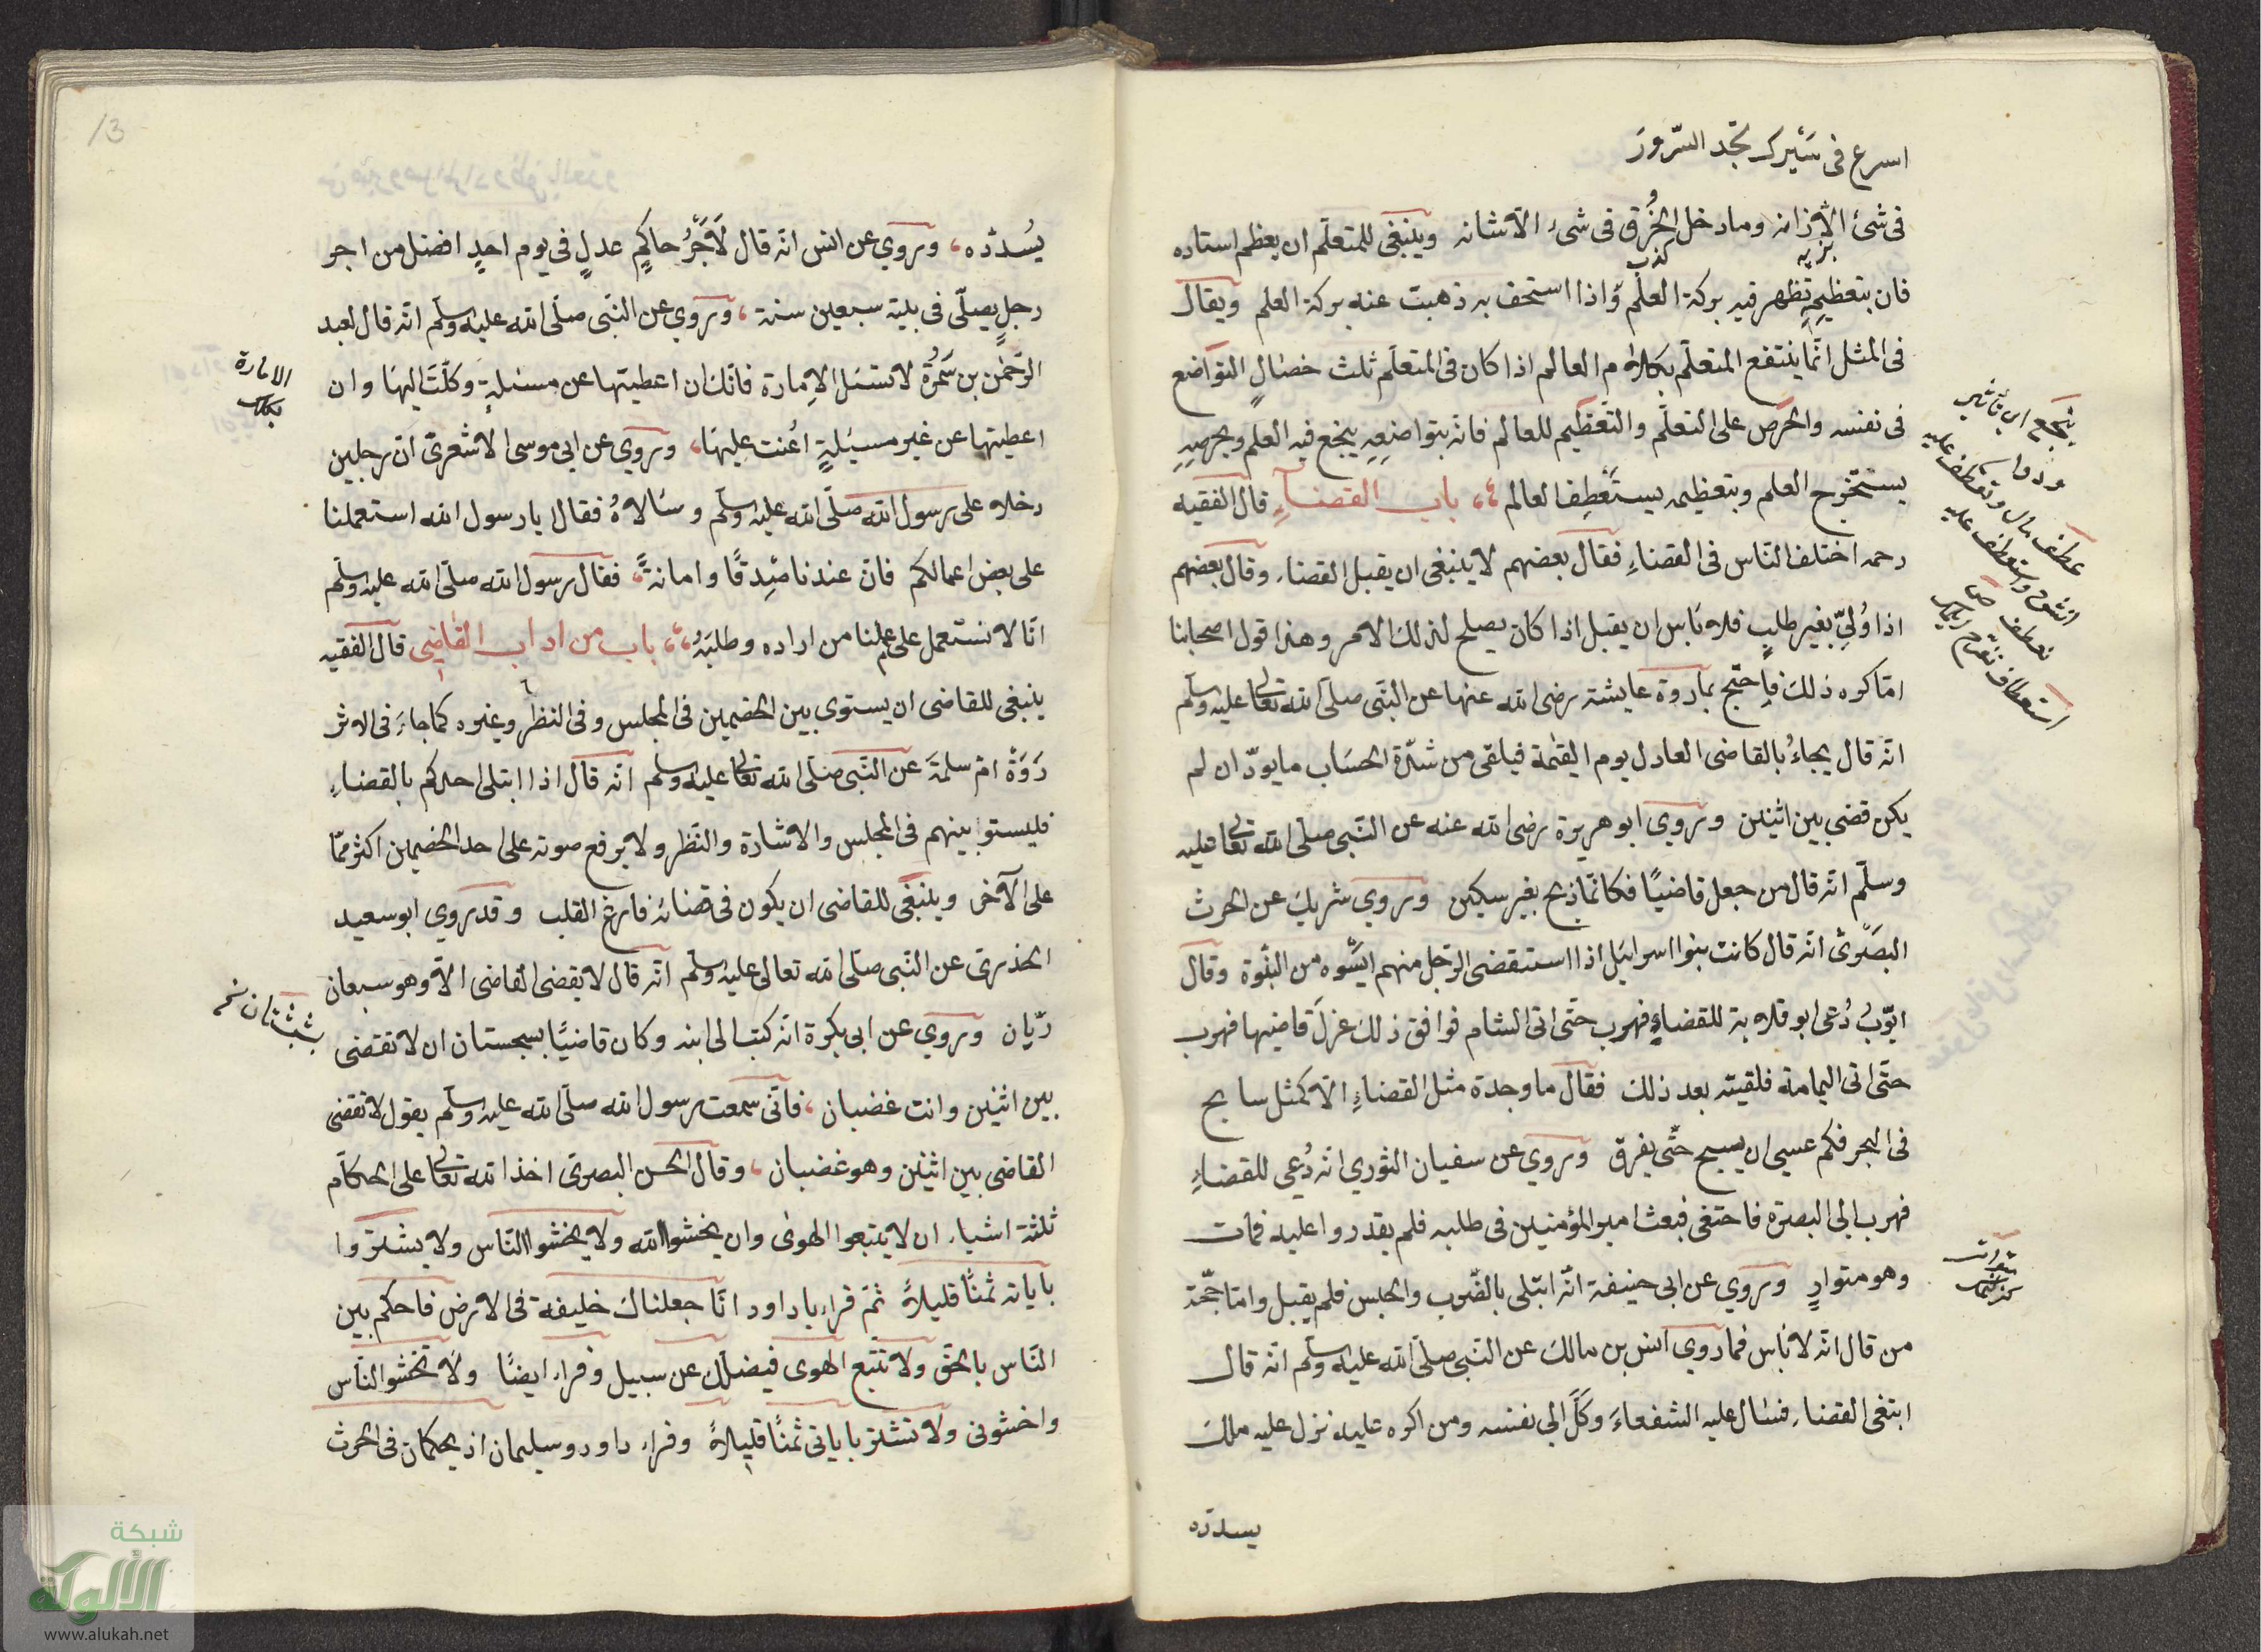 اسرع فى سَيْرِك تجد السّرورَ
فى شئ الّا زانه وما دخل الخُرق فى شىء الّا شانه وينبغى للمتعلّم ان يعظم استاده
فان بتعظيمِهِ تظهر فيه بركة العلم وَاذا استخف به ذهبت عنه بركة العلم ويقال
فى المثل انّما ينتفع المتعلّم بكلام العالم اذا كان فى المتعلّم ثلث خصالٍ التواضع
فى نفسه والحرص على التعلّم والتّعظيم للعالم فانّه بتواضعِهِ ينجع فيه العلم وبحرصِهِ
يستخرج العلم وبتعظيمه يستَعْطِف العالم باب القضآءِ قال الفقيه
رحمه اختلف النّاس فى القضاءِ فقال بعضهم لا ينبغى ان يقبل القضاء وقال بعضهم
اذا وُلِّيَ بغير طلبٍ فلا بَاس ان يقبل اذا كان يصلح لذلك الامر وهذا قول اصحابنا
امّا كره ذلك فاحتج بما روة عايشة رضى الله عنها عن النّبى صلّى الله تعالى عليه وسلّم
انّه قال يجاءُ بالقاضى العادل يوم القيٰمة فيلقى من شدّة الحسَاب ما يودّ ان لم
يكن قضى بين اثنين وروي ابو هريرة رضى الله عنه عن النّبى صلّى الله تعالى عليه
وسلّم انّه قال من جعل قاضيًا فكانّما ذبح بغير سكين وروي شريك عن الحرث
البصَرىّ انّه قال كانت بنوا اسرائيل اذا استقضى الرّجل منهم ايَسُوه من النبوّة وقال
ايّوبُ دُعى ابو قلابة للقضاءِ فهرب حتّى اتى الشام فوافق ذلك عزلَ قاضيها فهرب
حتّى اتى اليمامة فلقيته بعد ذلك فقال ما وجدة مثل القضاءِ الّا كمثل سابح
فى البحر فكم عسى ان يسبح حتّى يغرق وروي عن سفيان الثوري انّه دُعي للقضاءِ
فهرب الى البصرة فاختفى فبعث امير المؤمنين فى طلبه فلم يقدروا عليه فمات
وهو متوارٍ وروي عن ابى حنيفة انّه ابتلى بالضّرب والحبس فلم يقبل وامّا حجّة
من قال انّه لا بَاس فما روي انس بن مالك عن النّبى صلّى الله عليه وسلّم انّه قال
ابتغى القضاء فسٰال عليه الشفعاءَ وكّلَ الى نفسه ومن اكره عليه نزل عليه ملك
يسدّده
ينجع اى
عطف مال وتعطف عليه
اشفق واستعطف عليه
تعطف
يُسدّده، وروي عن انس انّه قال لَاَجْرُ حاكمٍ عدلٍ فى يوم احدٍ افضل من اجر
رجلٍ يصلّى فى بيته سبعين سنة، وروي عن النّبى صلّى الله عليه وسلّم انّه قال لعبد
الرّحمٰن بن سَمُرة لا تسئل الاِمارة فانّك ان اعطيتها عن مسئلةٍ وكّلتَ اليها وان
اعطيتها عن غير مسئلةٍ اُعنت عليهَا، وروي عن ابى موسى الاشعرىّ انّ رجلين
دخلا على رسول الله صلّى الله عليه وسلّم وسَالاهُ فقال يا رسول الله استعملنا
على بعض اعمالكم فان عندنا صِدقًا وامانةً، فقال رسول الله صلّى الله عليه وسلّم
انّا لا نستعمل على عملنا من اراده وطلبَهُ،، باب من اداب القاضِى قال الفقيه
ينبغى للقاضى ان يستوى بين الخصمين فى المجلس وفى النظر وغيره كما جاءَ فى الاثر
رَوَةْ امّ سلمةَ عن النّبى صلّى الله تعالى عليه وسلّم انّه قال اذا ابتلى احدكم بالقضاءِ
فليستوا بينهم فى المجلس والاشارة والنّظر ولا يرفع صوته على احد الخصمين اكثر ممّا
على الآخر وينبغى للقاضى ان يكون فى قضائه فارغ القلب وقد روي ابو سعيد
الخدرىّ عن النّبى صلّى الله تعالى عليه وسلّم انّه قال لا يقضى القاضى الّا وهو سبعان
ريّان وروي عن ابى بكرة انّه كتب الى ابنه وكان قاضيًا بسجستان ان لا تقضى
بين اثنين وانت غضبان، فانّى سمعت رسول الله صلّى الله عليه وسلّم يقول لا تقضى
القاضى بين اثنين وهو غضبان، وقال الحسن البصرىّ اخذ الله تعالى على الحكّام
ثلثة اشياء ان لا يتبعوا الهوىٰ وان يخشوا الله ولا يخشوا النّاس ولا يشتروا
باياته ثمنًا قليلاً ثمّ قراء يا داود انّا جعلناك خليفة فى الارض فاحكم بين
النّاس بالحقّ ولا تتبع الهوى فيضلّك عن سبيل وقراء ايضًا ولا تخشو النّاس
واخشونى ولا تشتر باياتى ثمنًا قليلاً وقراء داود وسليمان اذ يحكمان فى الحرث
الامارة
بكلك
13
شبكة
الألوكة
www.alukah.net